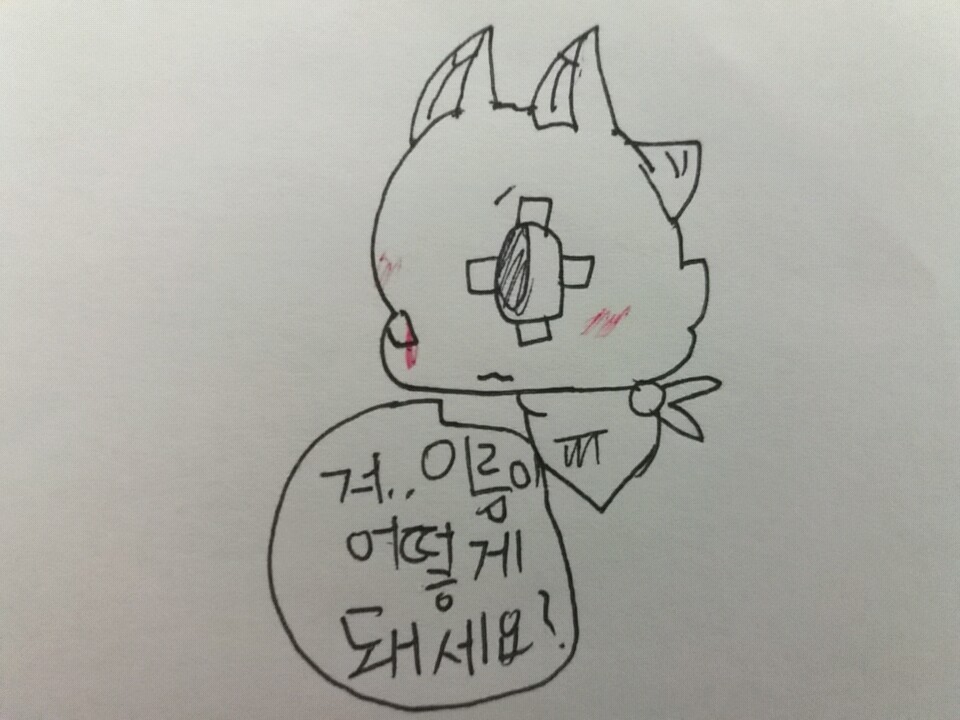 겨..이름이
어떻게
돼세요?